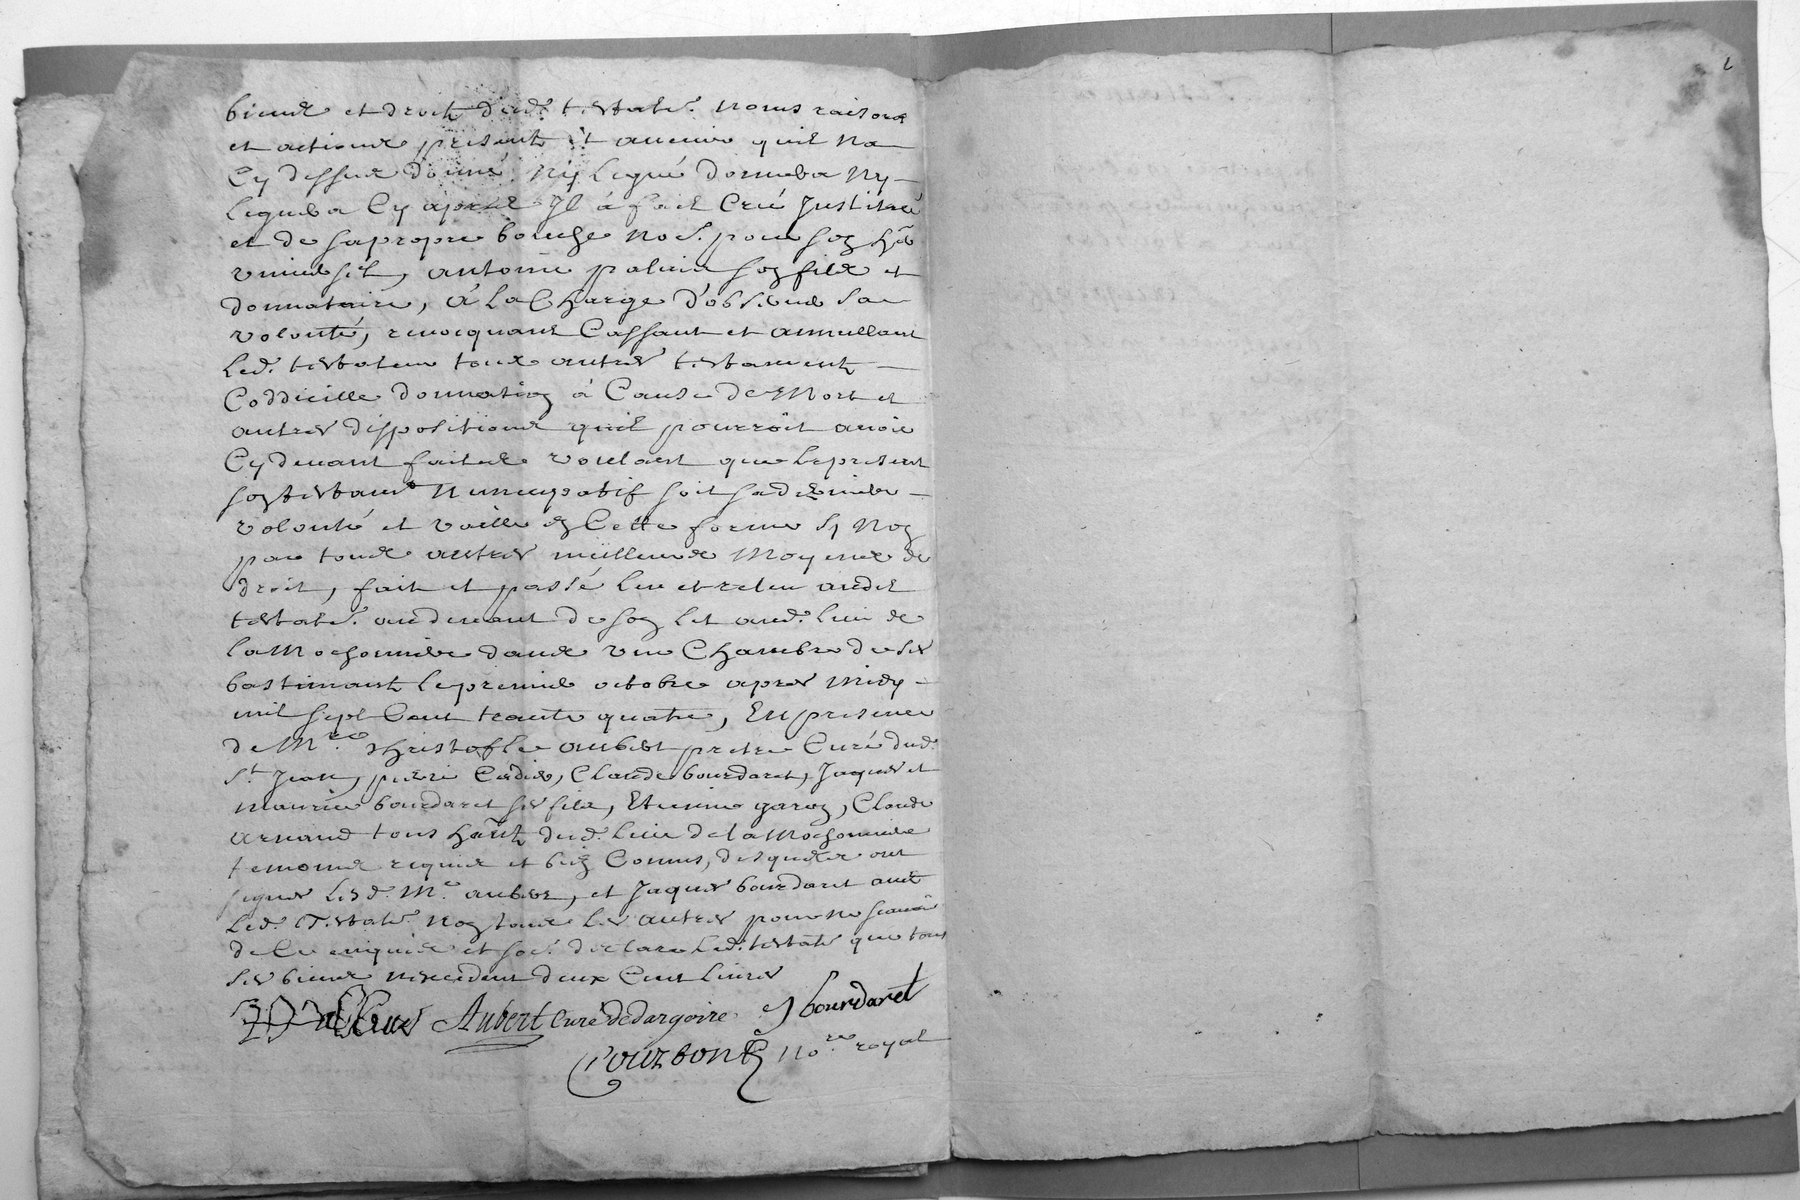 biens et droits dud. testate.r noms raisons
et actions presents et avenir quil na
Cy dessus donné ny legué donnera ny
leguera Cy apres Jl á fait Creé Justitué
et de sa propre bouche no.é pour son h.er
universel, antoine palais son fils et
donnataire, á la Charge d'observer sa
volonté, revocquant Cassant et annullant
led. testateur tous autres testaments
Coddicille donnation á Cause de Mort et
autres dispositions quil pourroit avoir
Cy devant faites voulant que le present
son testamt nuncupatif soit sa derniere
volonté et vaille en Cette forme sy non
par tous autres meilleurs Moyens de
droit, fait et passé leu et releu audit
testate.r audevant de son lit aud. lieu de
la Mochonniere dans une Chambre de ses
bastimants le premier octobre apres midy
mil sept Cent trante quatre, En presence
de Mre. Christofle aubert pretre Curé dud.
St. Jean, pierre Cadier, Claude bourdaret, Jaques et
maurice bourdaret ses fils, Etienne garon, Claude
arnaud tous hants dud. lieu de la Mochonniere
temoins requis et bien Connus, desquels ont
signer lesd. Mre. aubert, et Jaques bourdaret avec
led. Testater non tous les autres pour ne scavoir
de Ce enquis et so.é declare led. testatr que tous
ses biens n'excedent deux Cent livres
Aubert Curé de dargoire J bourdaret
Courbon nore royal